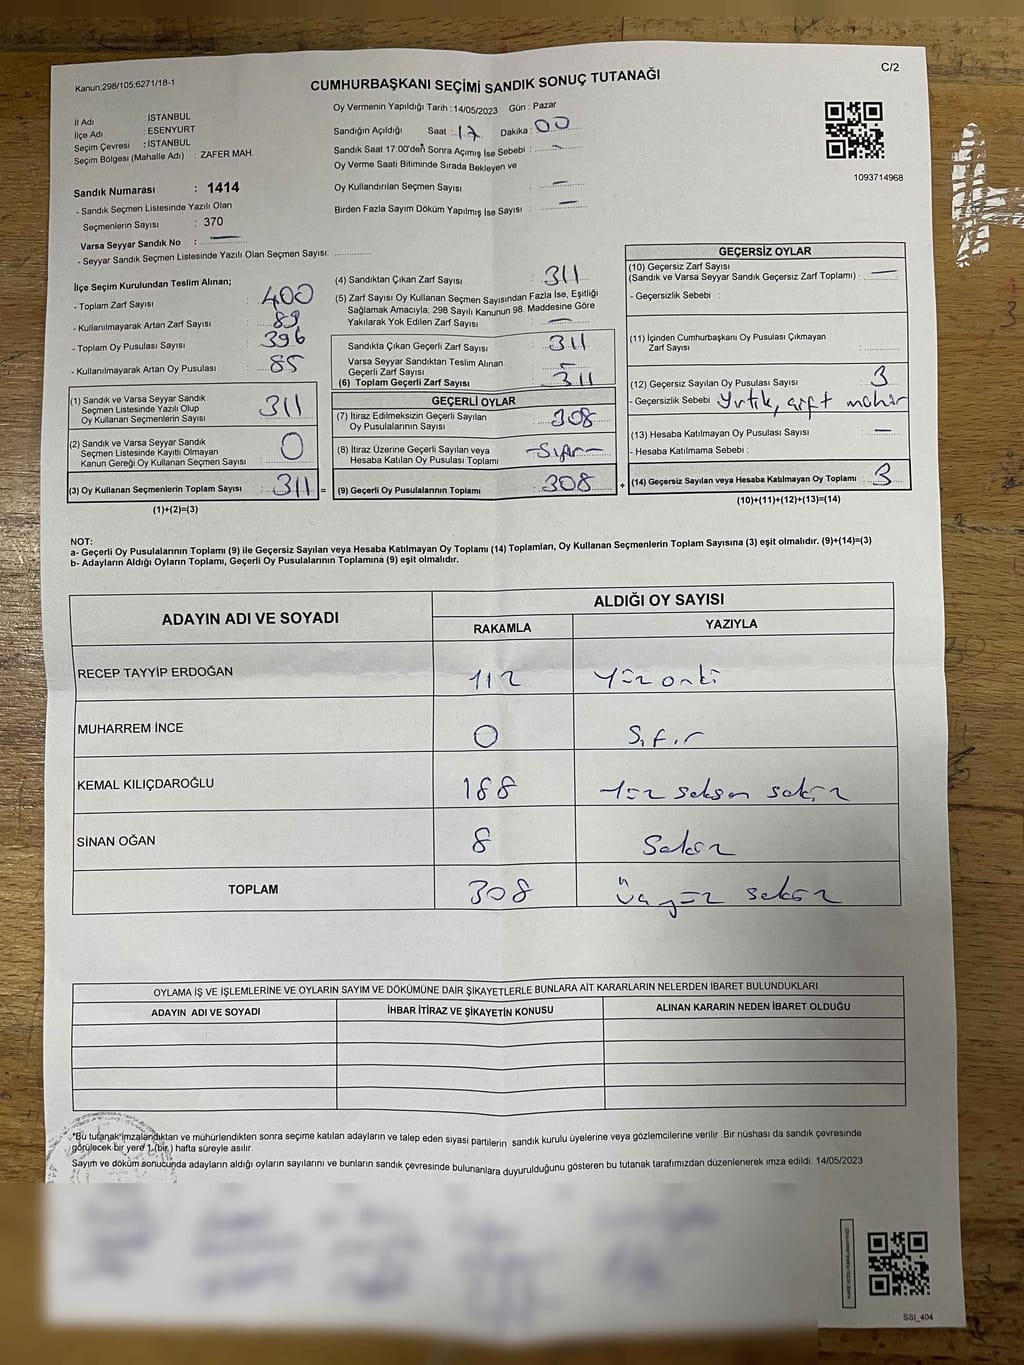 Kanun;298/105;6271/18-1
C/2
CUMHURBAŞKANI SEÇİMİ SANDIK SONUÇ TUTANAĞI
İl Adı : İSTANBUL
İlçe Adı : ESENYURT
Seçim Çevresi : İSTANBUL
Seçim Bölgesi (Mahalle Adı) : ZAFER MAH.
Sandık Numarası : 1414
- Sandık Seçmen Listesinde Yazılı Olan
Seçmenlerin Sayısı : 370
Varsa Seyyar Sandık No : —
- Seyyar Sandık Seçmen Listesinde Yazılı Olan Seçmen Sayısı:
Oy Vermenin Yapıldığı Tarih : 14/05/2023 Gün : Pazar
Sandığın Açıldığı Saat : 17 Dakika : 00
Sandık Saat 17:00'den Sonra Açımış İse Sebebi : —
Oy Verme Saati Bitiminde Sırada Bekleyen ve
Oy Kullandırılan Seçmen Sayısı : —
Birden Fazla Sayım Döküm Yapılmış İse Sayısı : —
1093714968
İlçe Seçim Kurulundan Teslim Alınan;
- Toplam Zarf Sayısı : 400
- Kullanılmayarak Artan Zarf Sayısı : 89
- Toplam Oy Pusulası Sayısı : 396
- Kullanılmayarak Artan Oy Pusulası : 85
(1) Sandık ve Varsa Seyyar Sandık
Seçmen Listesinde Yazılı Olup
Oy Kullanan Seçmenlerin Sayısı : 311
(2) Sandık ve Varsa Seyyar Sandık
Seçmen Listesinde Kayıtlı Olmayan
Kanun Gereği Oy Kullanan Seçmen Sayısı : 0
(3) Oy Kullanan Seçmenlerin Toplam Sayısı : 311 =
(1)+(2)=(3)
(4) Sandıktan Çıkan Zarf Sayısı : 311
(5) Zarf Sayısı Oy Kullanan Seçmen Sayısından Fazla İse, Eşitliği
Sağlamak Amacıyla; 298 Sayılı Kanunun 98. Maddesine Göre
Yakılarak Yok Edilen Zarf Sayısı : —
Sandıkta Çıkan Geçerli Zarf Sayısı : 311
Varsa Seyyar Sandıktan Teslim Alınan
Geçerli Zarf Sayısı : —
(6) Toplam Geçerli Zarf Sayısı : 311
GEÇERLİ OYLAR
(7) İtiraz Edilmeksizin Geçerli Sayılan
Oy Pusulalarının Sayısı : 308
(8) İtiraz Üzerine Geçerli Sayılan veya
Hesaba Katılan Oy Pusulası Toplamı : -Sıfır-
(9) Geçerli Oy Pusulalarının Toplamı : 308 +
GEÇERSİZ OYLAR
(10) Geçersiz Zarf Sayısı
(Sandık ve Varsa Seyyar Sandık Geçersiz Zarf Toplamı) : —
- Geçersizlik Sebebi :
(11) İçinden Cumhurbaşkanı Oy Pusulası Çıkmayan
Zarf Sayısı :
(12) Geçersiz Sayılan Oy Pusulası Sayısı : 3
- Geçersizlik Sebebi : Yırtık, çift mühür
(13) Hesaba Katılmayan Oy Pusulası Sayısı : —
- Hesaba Katılmama Sebebi :
(14) Geçersiz Sayılan veya Hesaba Katılmayan Oy Toplamı : 3
(10)+(11)+(12)+(13)=(14)
NOT:
a- Geçerli Oy Pusulalarının Toplamı (9) ile Geçersiz Sayılan veya Hesaba Katılmayan Oy Toplamı (14) Toplamları, Oy Kullanan Seçmenlerin Toplam Sayısına (3) eşit olmalıdır. (9)+(14)=(3)
b- Adayların Aldığı Oyların Toplamı, Geçerli Oy Pusulalarının Toplamına (9) eşit olmalıdır.
ADAYIN ADI VE SOYADI ALDIĞI OY SAYISI
RAKAMLA YAZIYLA
RECEP TAYYİP ERDOĞAN 112 Yüz oniki
MUHARREM İNCE 0 Sıfır
KEMAL KILIÇDAROĞLU 188 Yüz seksen sekiz
SİNAN OĞAN 8 Sekiz
TOPLAM 308 Üçyüz sekiz
OYLAMA İŞ VE İŞLEMLERİNE VE OYLARIN SAYIM VE DÖKÜMÜNE DAİR ŞİKAYETLERLE BUNLARA AİT KARARLARIN NELERDEN İBARET BULUNDUKLARI
ADAYIN ADI VE SOYADI İHBAR İTİRAZ VE ŞİKAYETİN KONUSU ALINAN KARARIN NEDEN İBARET OLDUĞU
"Bu tutanak imzalandıktan ve mühürlendikten sonra seçime katılan adayların ve talep eden siyasi partilerin sandık kurulu üyelerine veya gözlemcilerine verilir .Bir nüshası da sandık çevresinde
görülecek bir yere 1 (bir ) hafta süreyle asılır.
Sayım ve döküm sonucunda adayların aldığı oyların sayılarını ve bunların sandık çevresinde bulunanlara duyurulduğunu gösteren bu tutanak tarafımızdan düzenlenerek imza edildi. 14/05/2023
SSI_404